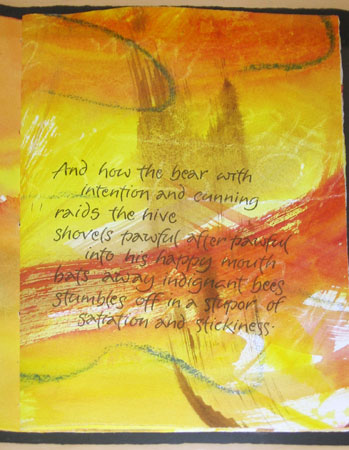 And how the bear with
intention and cunning
raids the hive
shovels pawful after pawful
into his happy mouth
bats away indignant bees
stumbles off in a stupor of
satiation and stickiness.